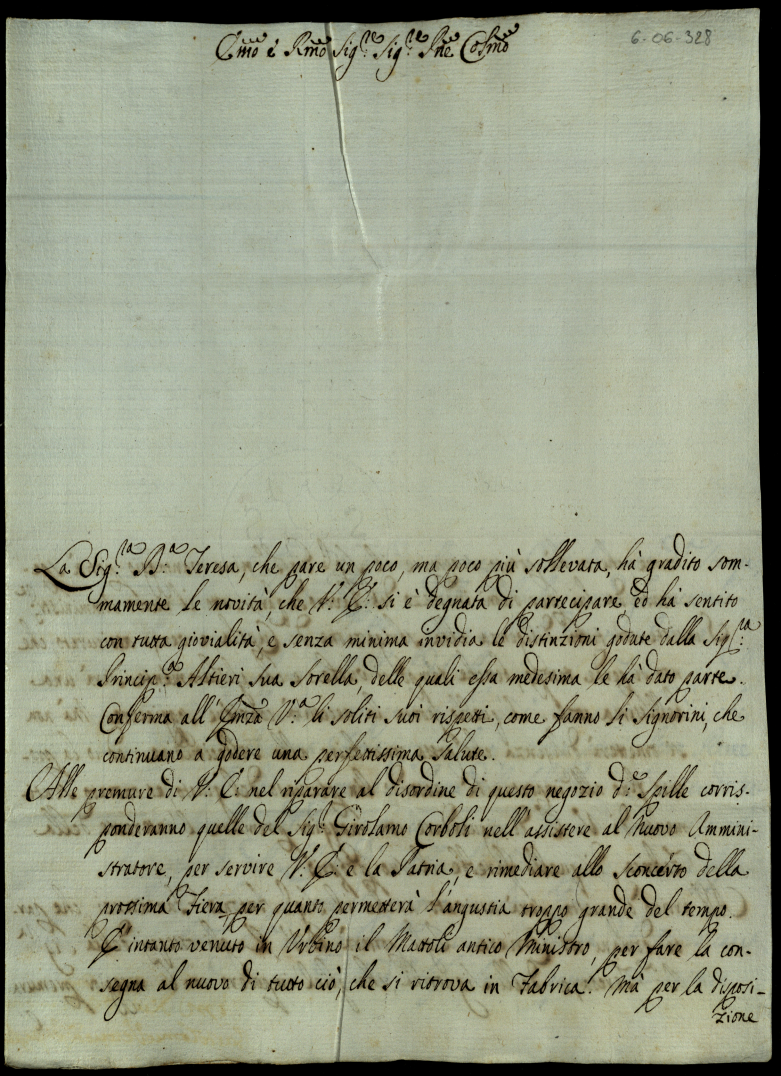 Emo e Rmo Sig.re Sig.re Pne Colmo
6-06-328
La Sig.ra B.a Teresa, che pare un poco, ma poco più sollevata, hà gradito som-
mamente le novità, che V. E. si è degnata di partecipare, ed hà sentito
con tutta giovialità, e senza minima invidia le distinzioni godute dalla Sig.ra
Princip.a Altieri sua sorella, delle quali essa medesima le hà dato parte.
Conferma all' Emza V.a li soliti suoi rispetti, come fanno li Signorini, che
continuano a godere una perfettissima salute.
Alle premure di V. E. nel riparare al disordine di questo negozio d.e Spille corris-
ponderanno quelle del Sig.r Girolamo Corboli nell'assistere al nuovo Ammini-
stratore, per servire V. E. e la Patria, e rimediare allo sconcerto della
prossima Fiera, per quanto permetterà l'angustia troppo grande del tempo.
E' intanto venuto in Urbino il Mattoli antico Ministro, per fare la con-
segna al nuovo di tutto ciò, che si ritrova in Fabrica. Mà per la disposi-
zione